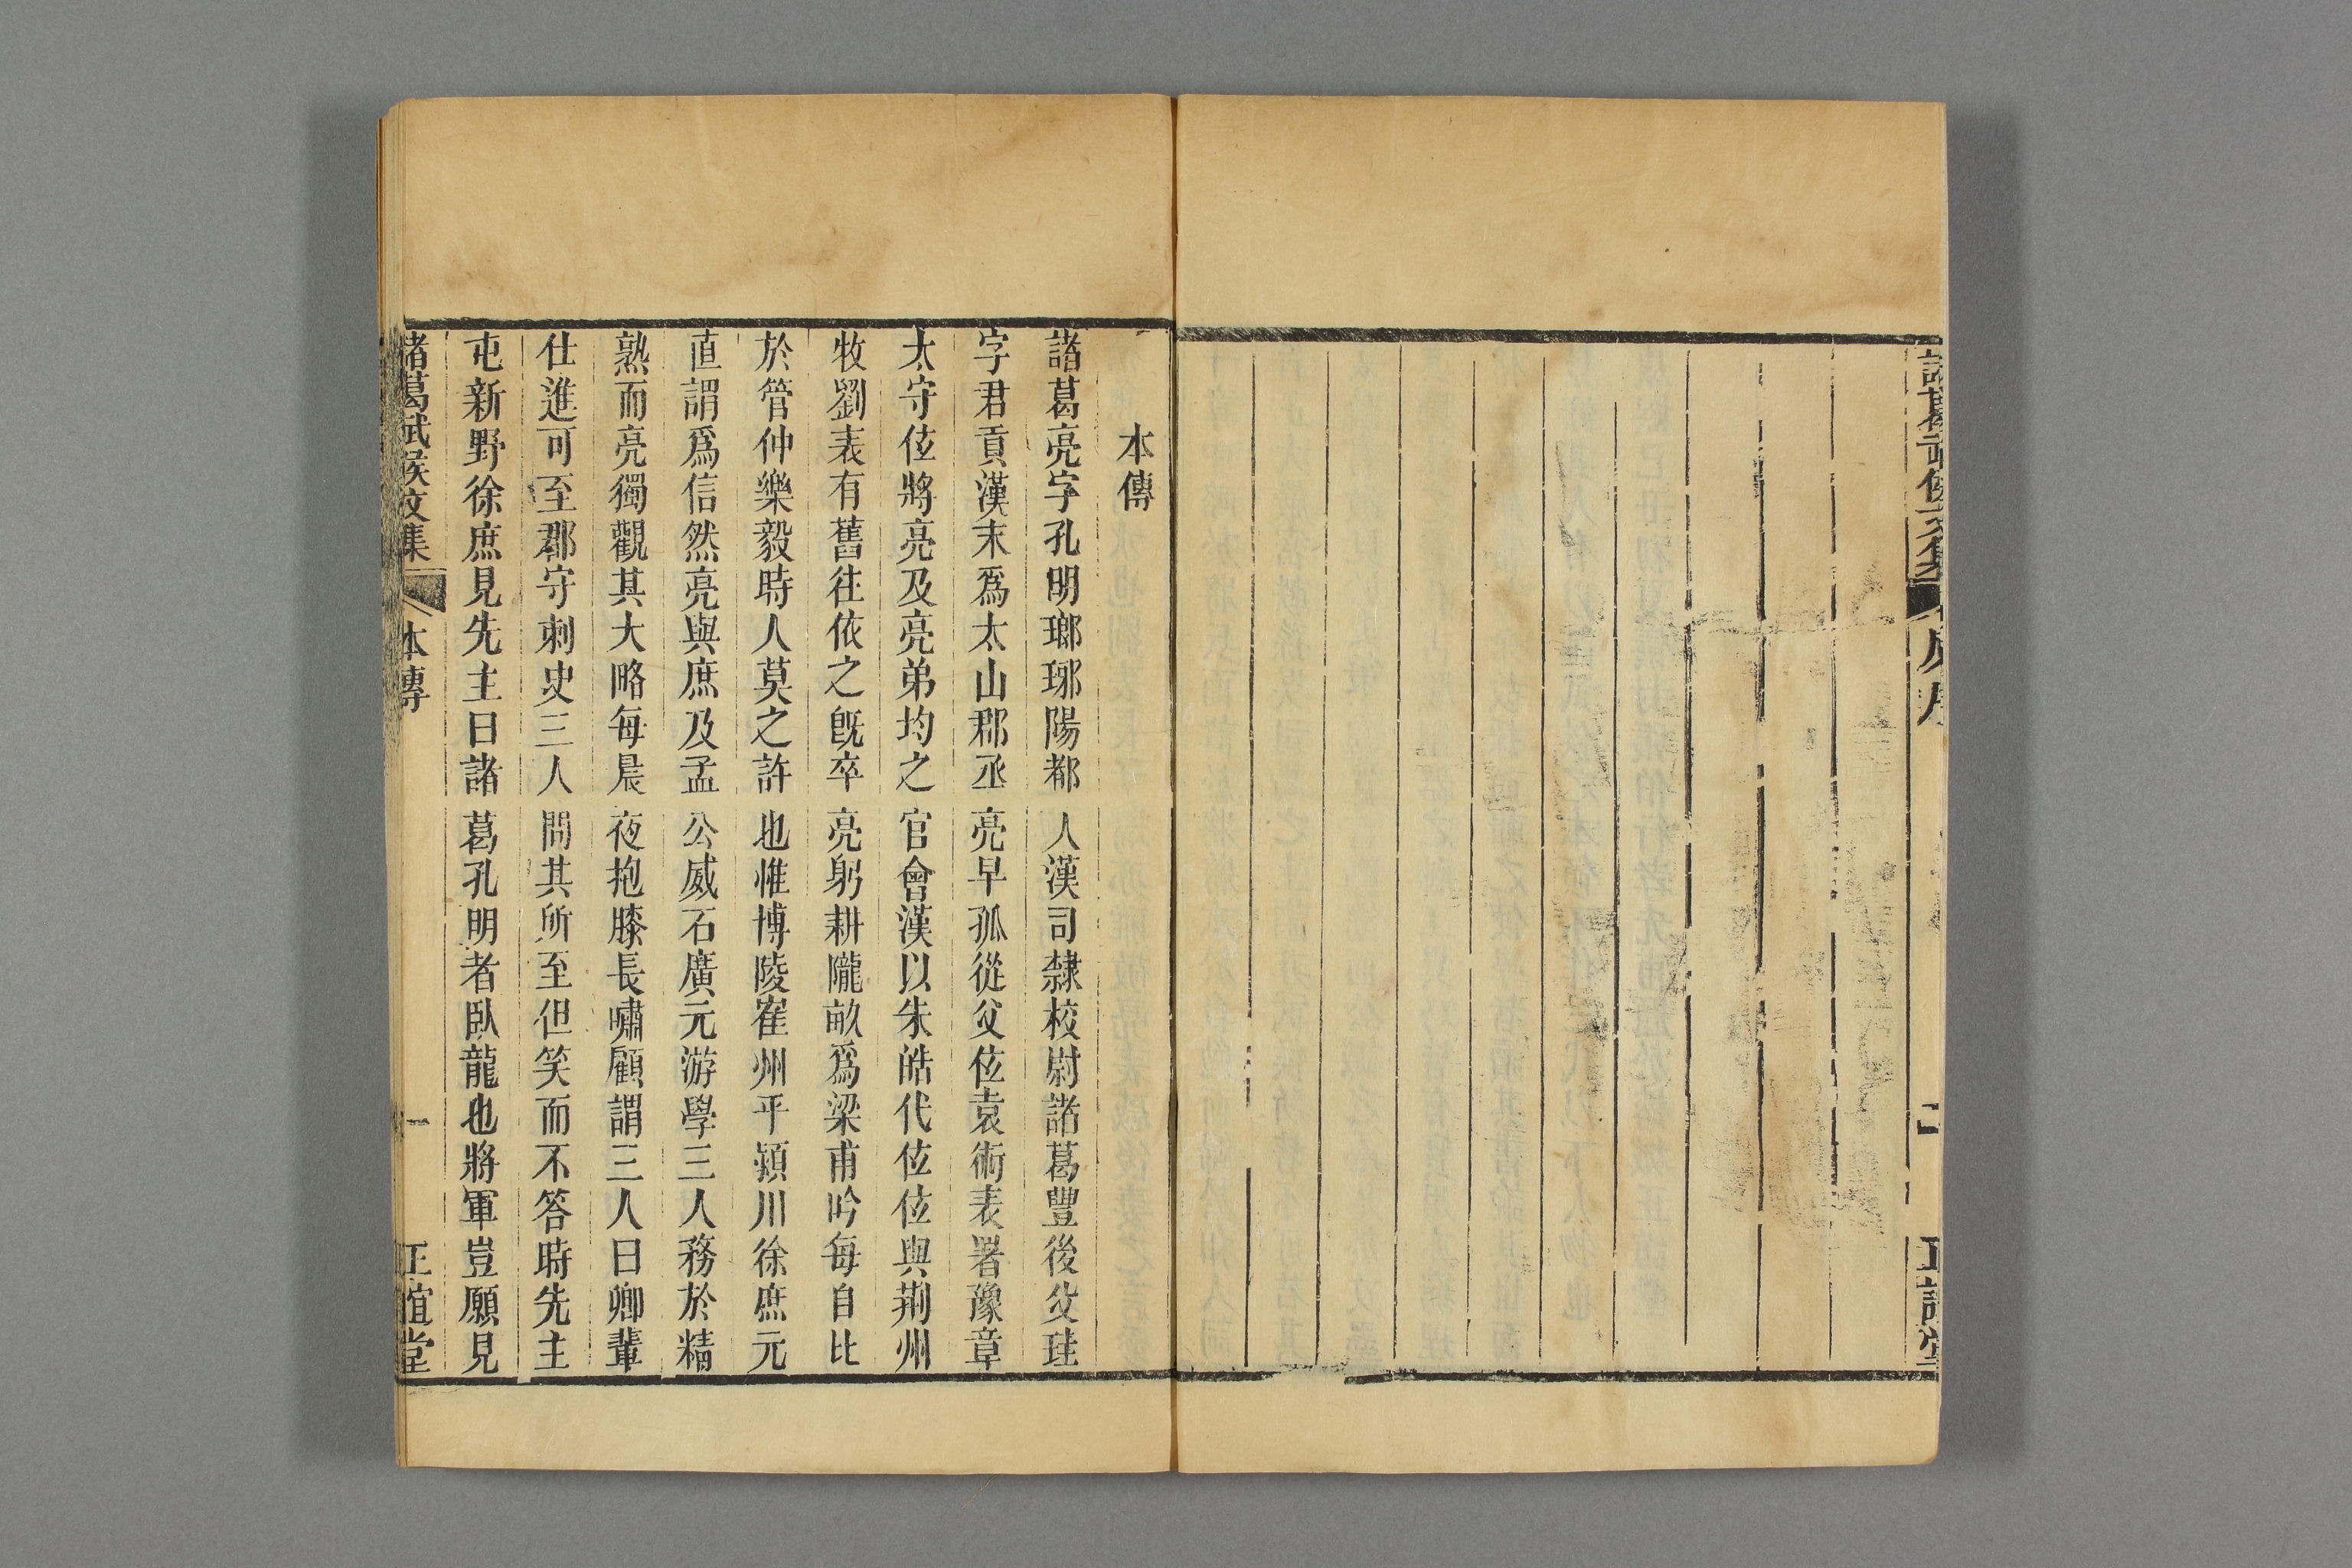 諸葛武侯文集
序
二
正誼堂
本傳
諸葛亮字孔明瑯琊陽都人漢司隸校尉諸葛豐後父珪
字君貢漢末爲太山郡丞亮早孤從父位袁術表署豫章
太守位將亮及亮弟均之官會漢以朱皓代位位與荆州
牧劉表有舊往依之旣卒亮躬耕隴畝爲梁甫吟每自比
於管仲樂毅時人莫之許也惟博陵崔州平潁川徐庶元
直謂爲信然亮與庶及孟公威石廣元游學三人務於精
熟而亮獨觀其大略每晨夜抱膝長嘯顧謂三人曰卿輩
仕進可至郡守刺史三人問其所至但笑而不答時先主
屯新野徐庶見先主曰諸葛孔明者臥龍也將軍豈願見
諸葛武侯文集
本傳
一
正誼堂